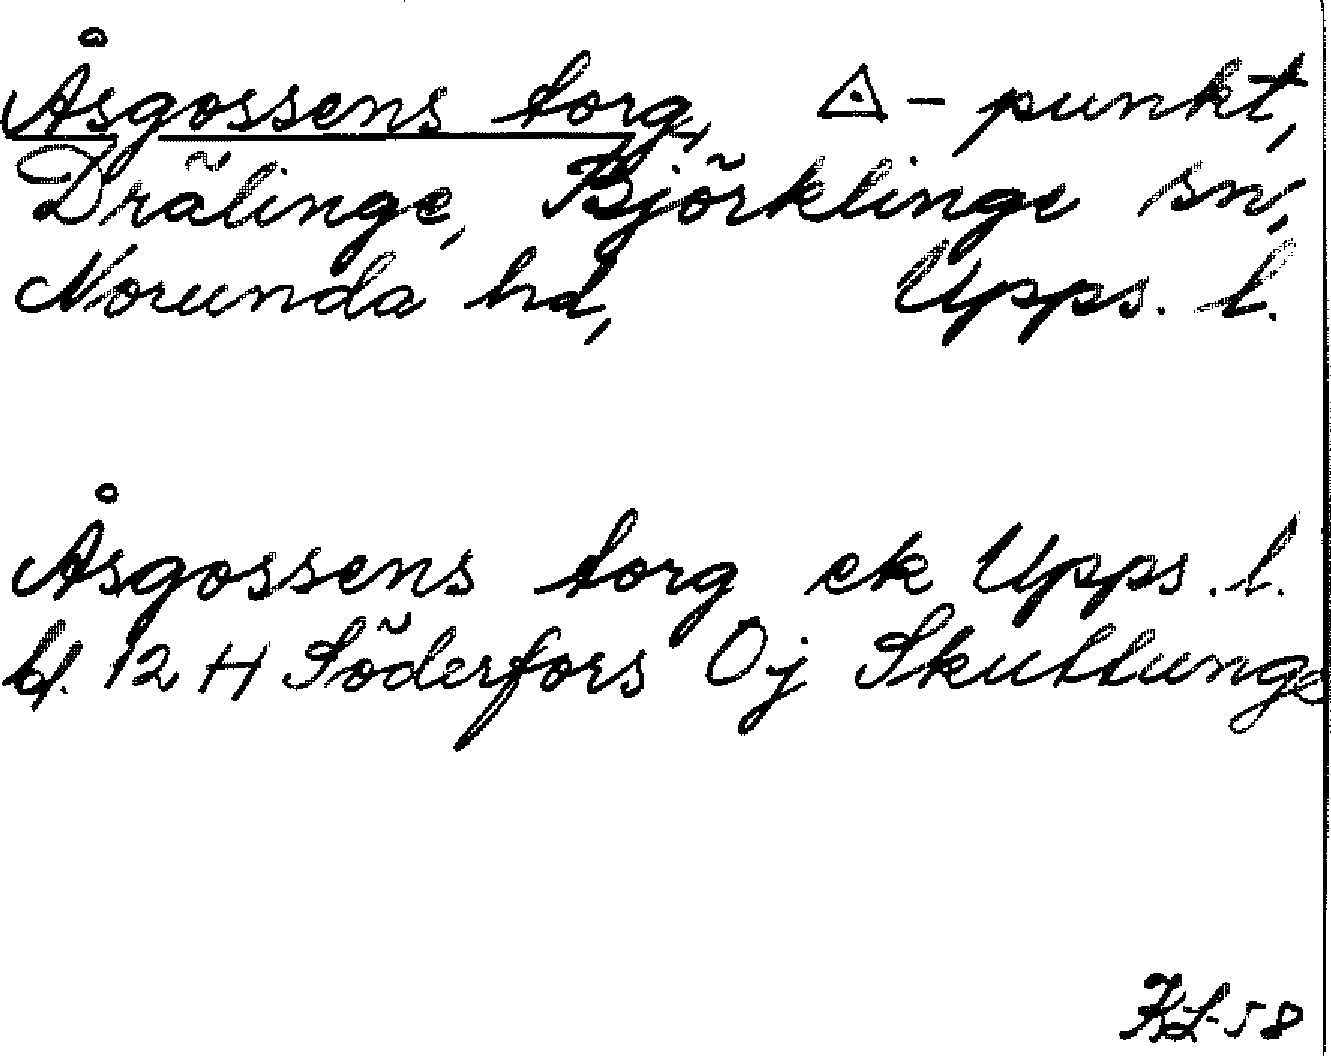 Åsgossens torg, △-punkt,
Drälinge, Björklinge sn,
Norunda hd, Upps. l.
Åsgossens torg ek Upps. l.
bl. 12 H Söderfors Oj Skuttunge
KL-58